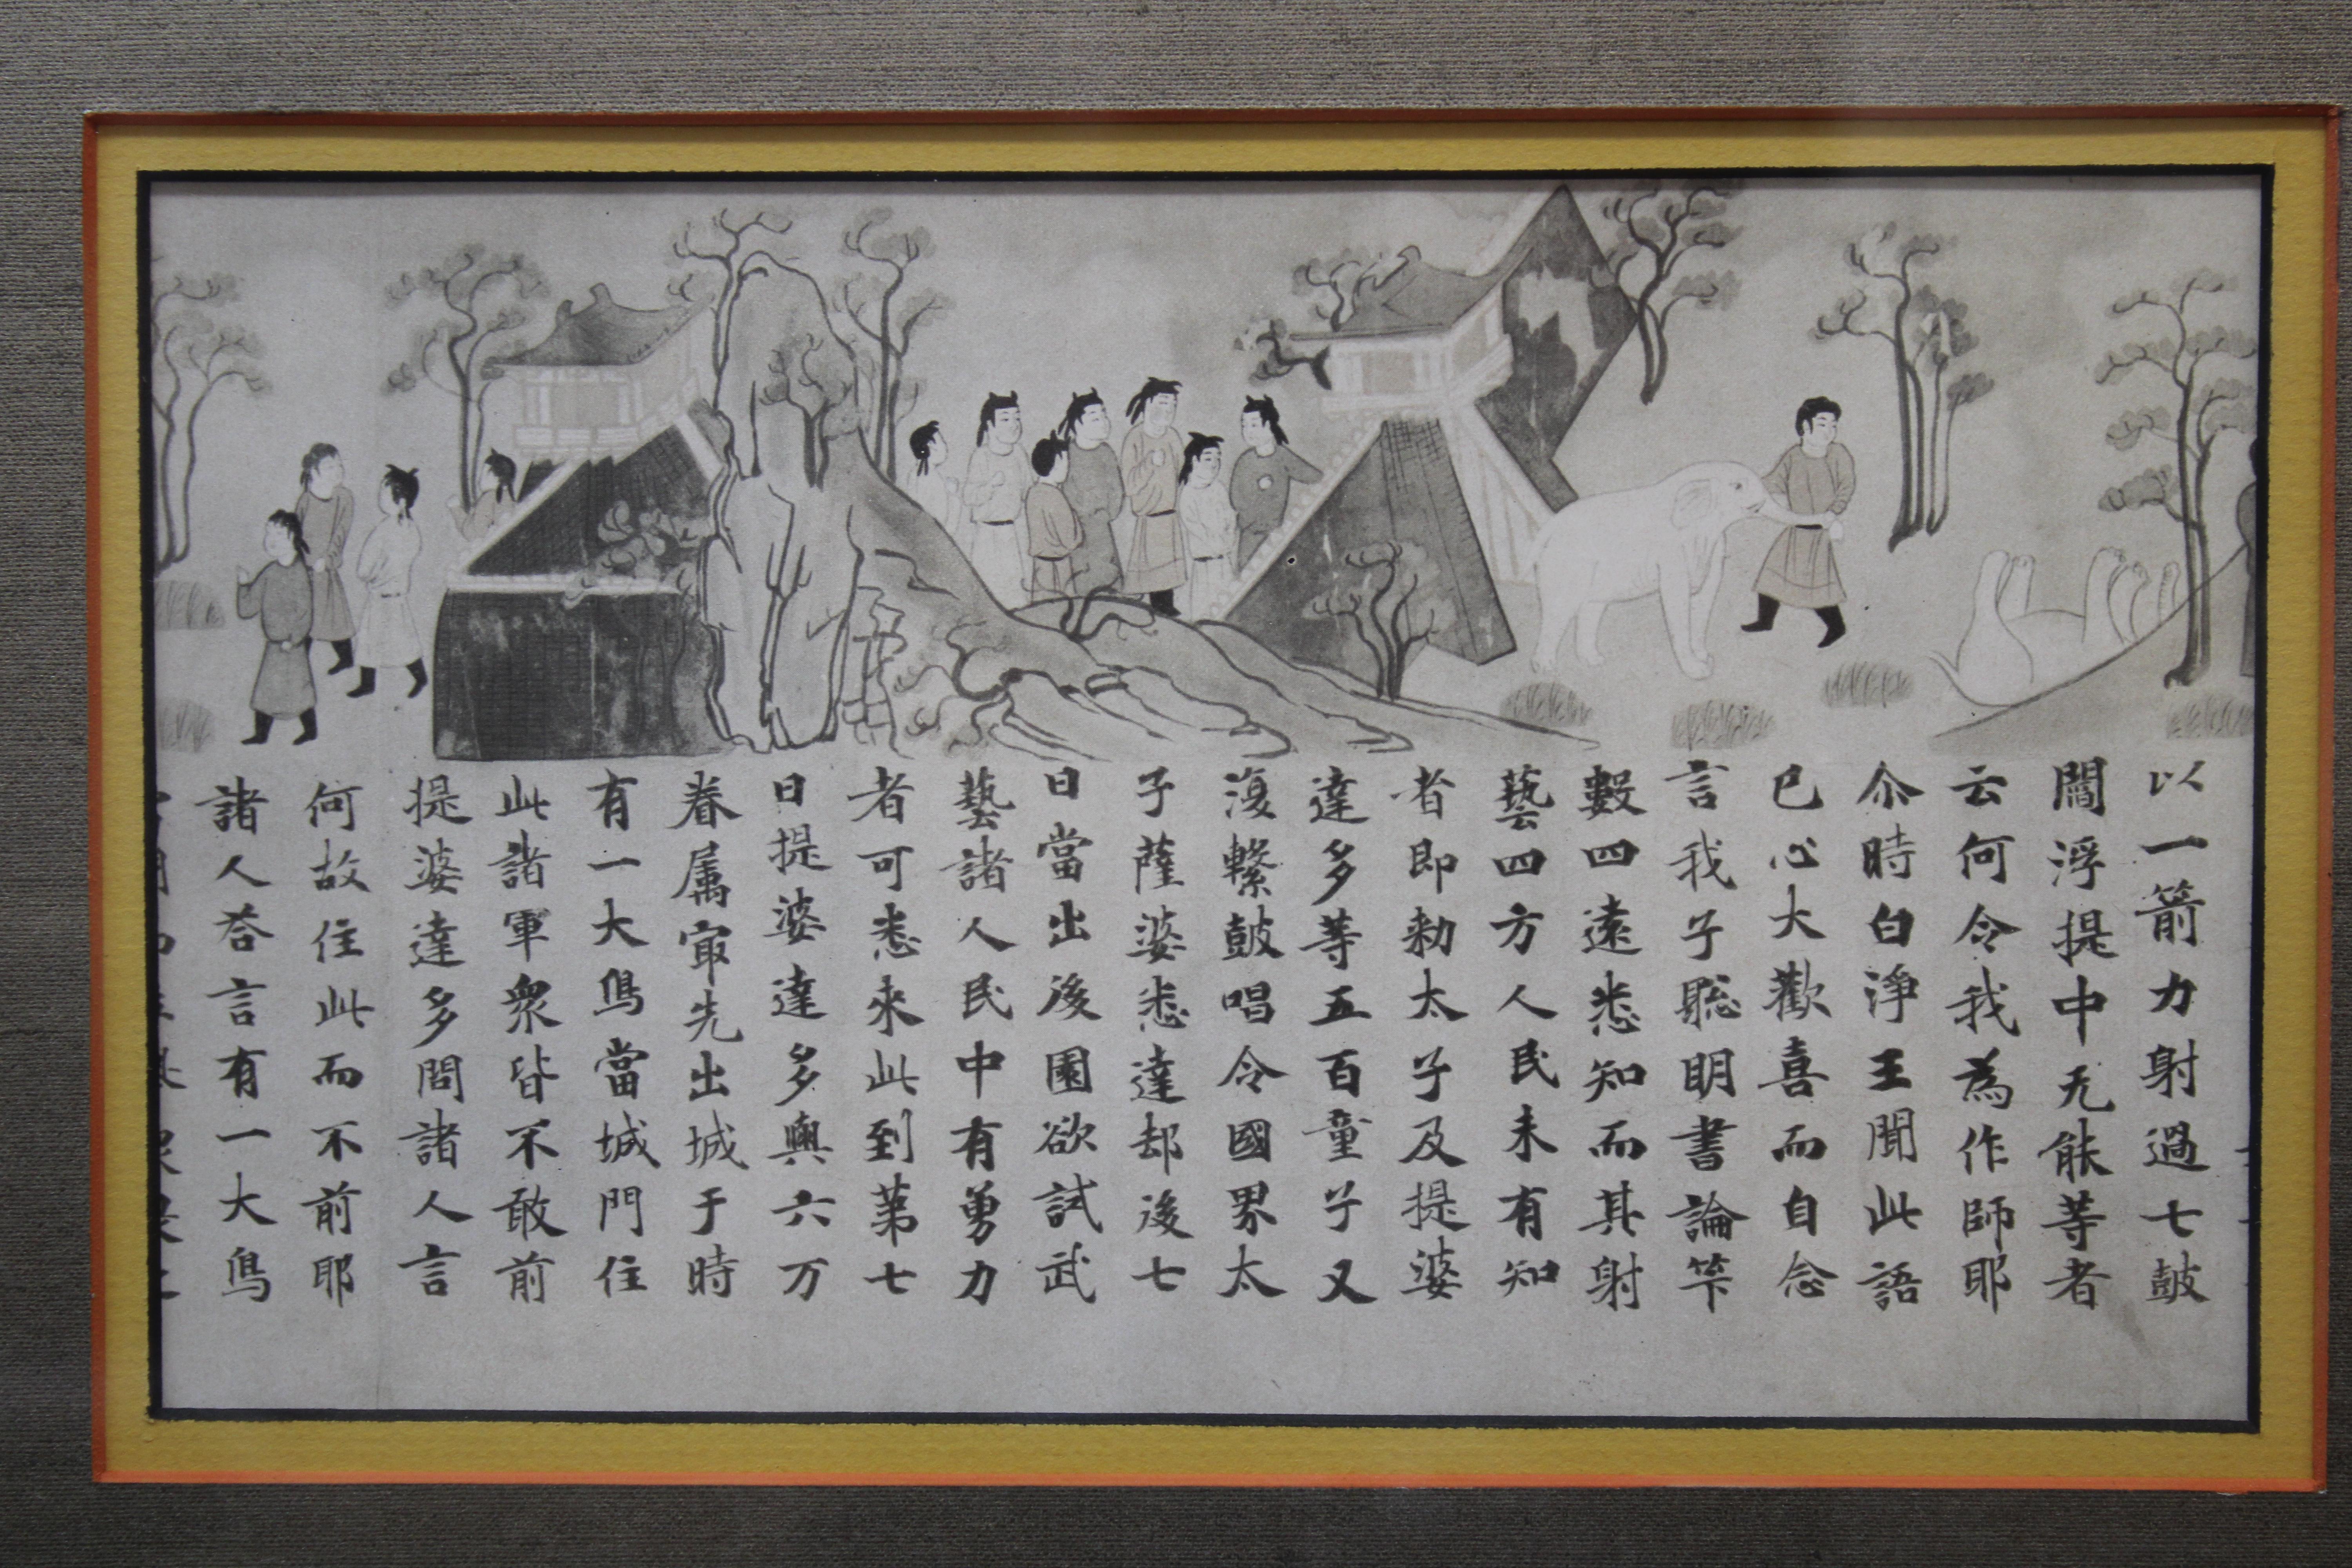 以一箭力射過七鼓
閻浮提中无能等者
云何令我為作師耶
尒時白淨王聞此語
已心大歡喜而自念
言我子聡明書論笇
數四遠悉知而其射
藝四方人民未有知
者即勅太子及提婆
達多等五百童子又
復繫鼓唱令國界太
子薩婆悉達却後七
日當出後園欲試武
藝諸人民中有勇力
者可悉來此到第七
日提婆達多與六万
眷属冣先出城于時
有一大象當城門住
此諸軍衆皆不敢前
提婆達多問諸人言
何故住此而不前耶
諸人荅言有一大象